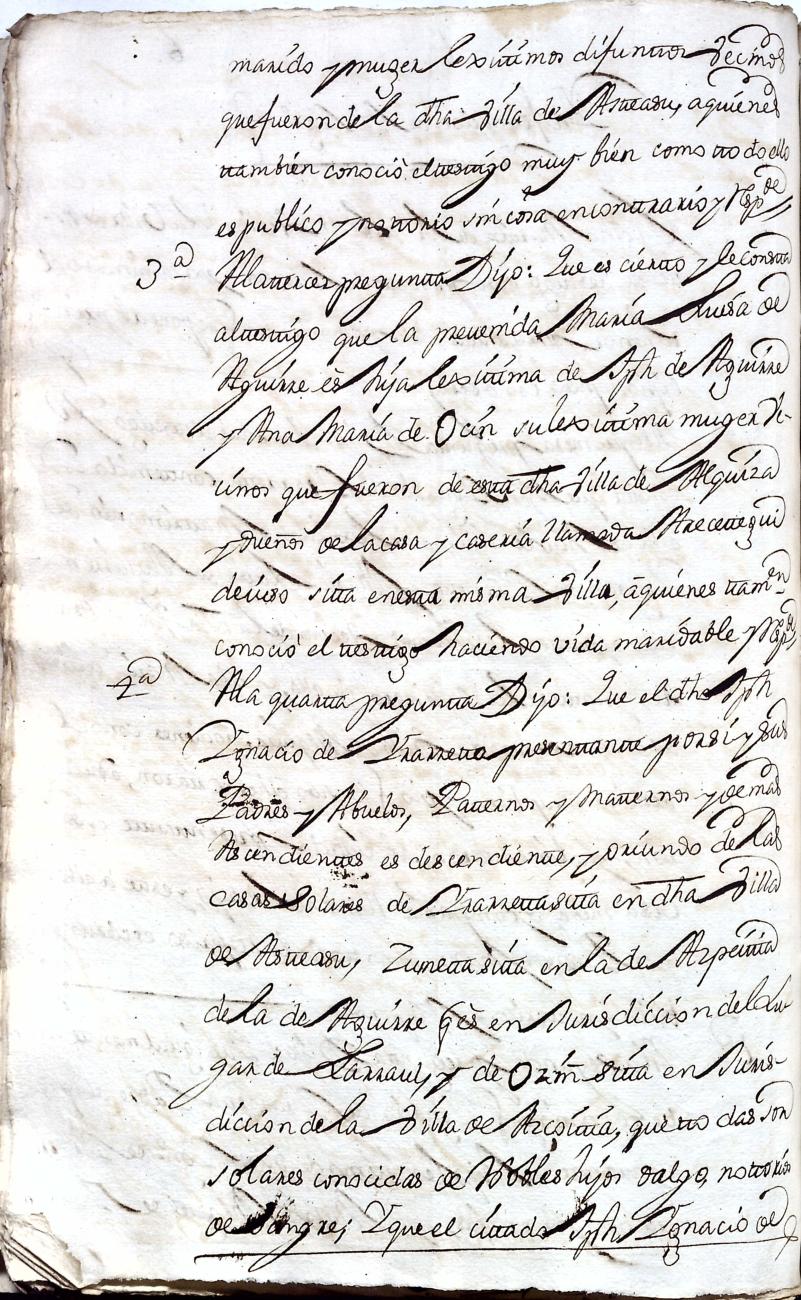 marido y muger lexitimos difunttos Vecinos
que fueron de la dha Villa de Asteasu, a quienes
ttambien conociò el testigo muy bien como ttodo ello
es publico y nottorio sin cosa en conttrario y Respde
3a A la tercer pregunta Dijo: Que es cierto y le constta
al testigo que la prevenida Maria Luisa de
Aguirre ès hija lexitima de Jph de Aguirre
y Ana Maria de Ocin su lexitima muger Ve-
cinos que fueron de esta dha Villa de Alquiza
y dueños de la casa y caseria llamada Arecettegui
de suso sitta en esta misma Villa, a quienes ttamen
conociò el testigo haciendo vida maridable y Respde
4a A la quartta pregunta Dijo: Que el dho Jph
Ygnacio de Yrarretta presenttante por si y sus
Padres y Abuelos, Patternos y Matternos y demas
Ascendientes es descendiente, y oriundo de las
casas Solares de Yrarretta sitta en dha Villa
de Asteasu, Zumetta sitta en la de Azpeittia
de la de Aguirre qe ès en Jurisdiccion del Lu
gar de Larraul, y de Ozin sitta en Juris-
diccion de la Villa de Azcoittia, que ttodas son
solares conocidas de Nobles hijos dalgo, nottorios
de Sangre; Y que el cittado Jph Ygnacio de